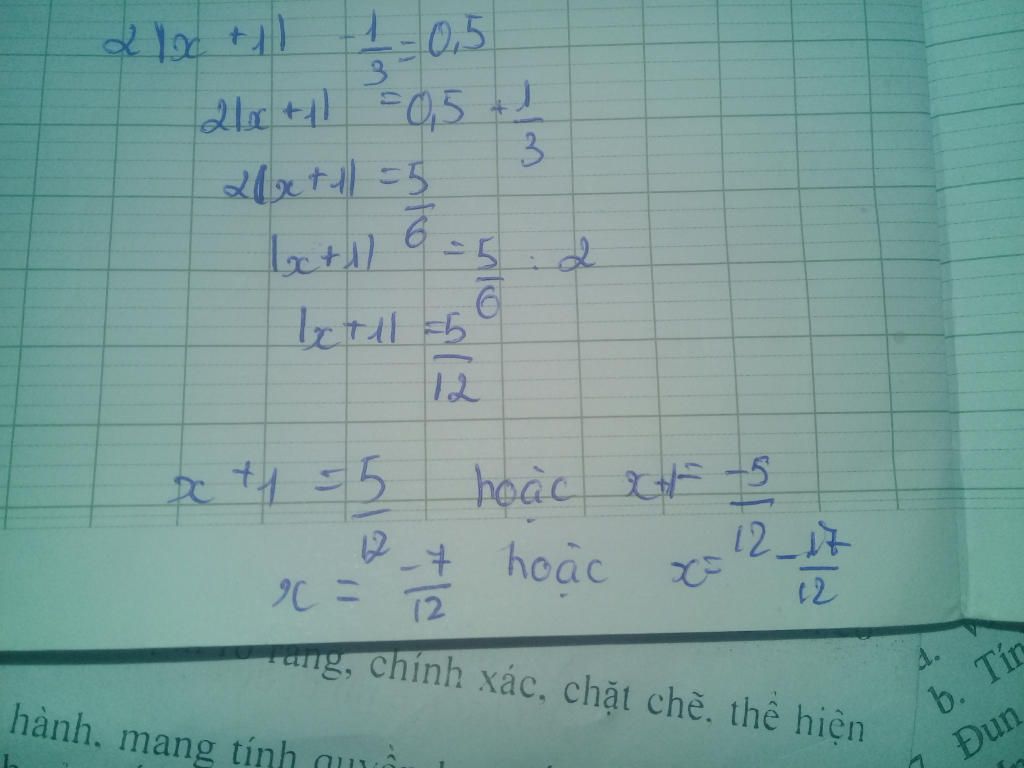 2|x + 1| - 1/3 = 0,5
2|x + 1| = 0,5 + 1/3
2|x + 1| = 5/6
|x + 1| = 5/6 : 2
|x + 1| = 5/12
x + 1 = 5/12 hoặc x + 1 = -5/12
x = -7/12 hoặc x = -17/12
ràng, chính xác, chặt chẽ. thể hiện
hành. mang tính quyền
a.
b. Tín
Đun